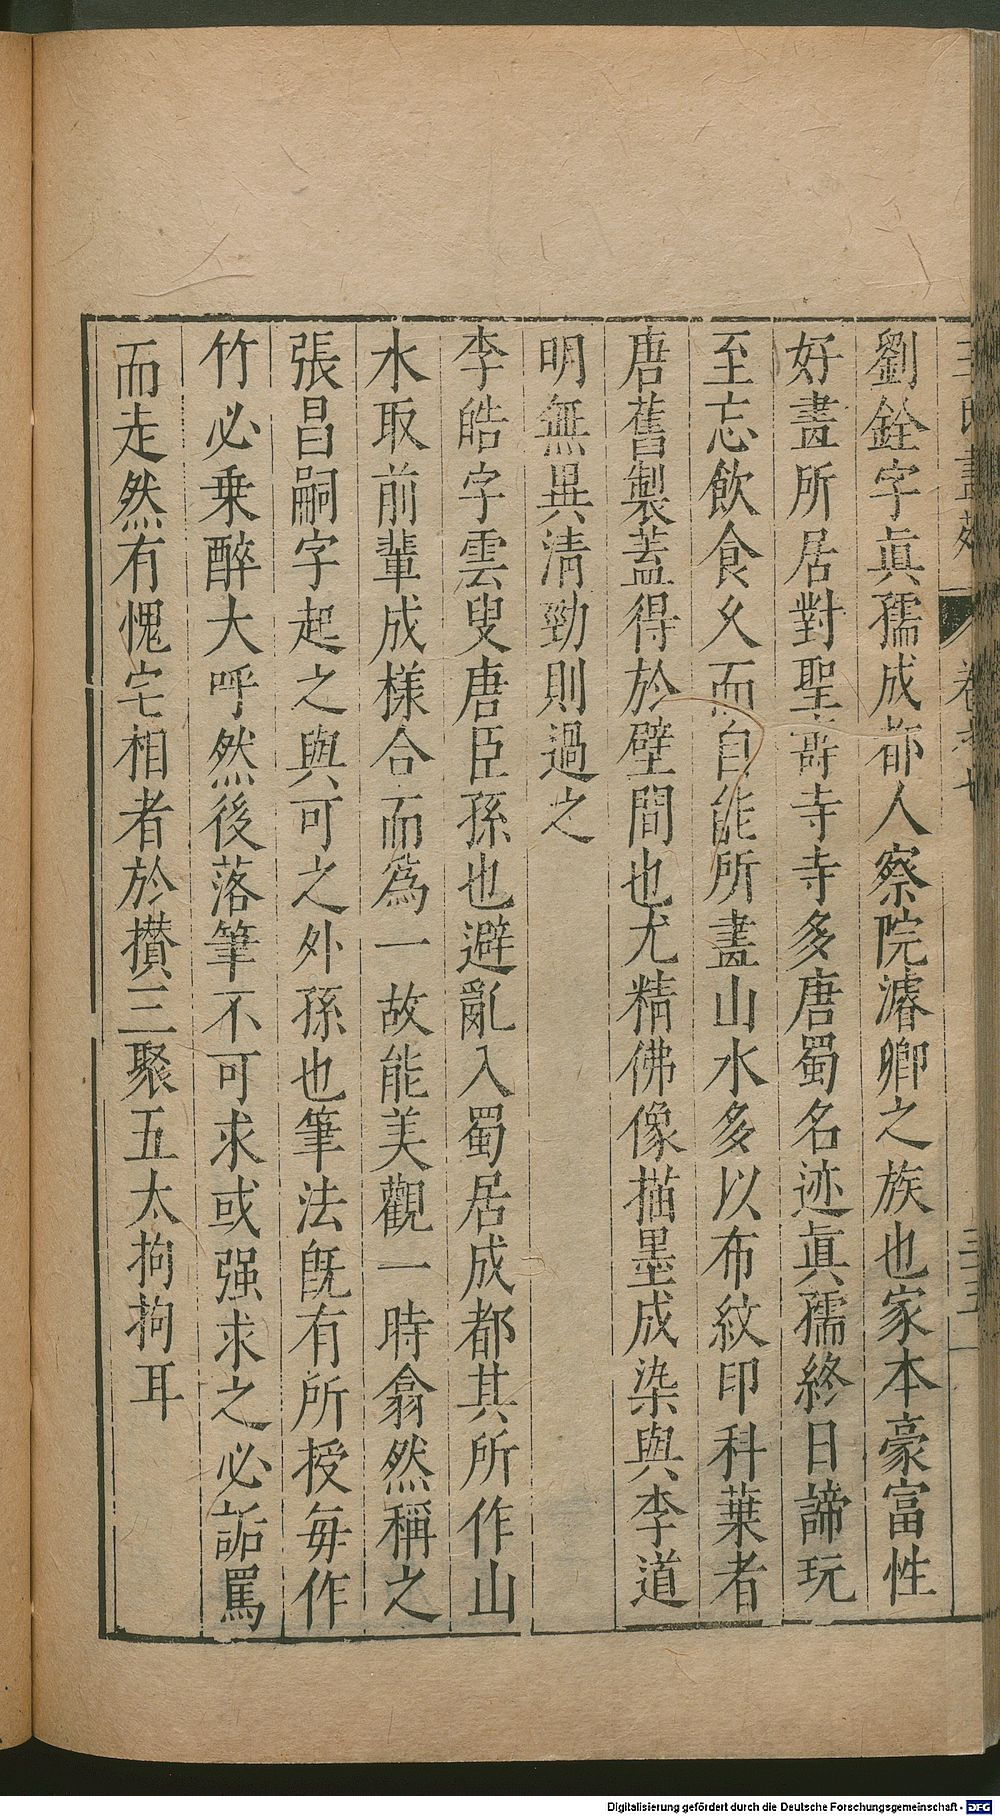 劉銓字眞孺成都人察院濬卿之族也家本豪富性
好畫所居對聖壽寺寺多唐蜀名迹眞孺終日諦玩
至忘飲食乆而自能所畫山水多以布紋印科葉者
唐舊製蓋得於壁間也尤精佛像描墨成染與李道
明無異清勁則過之
李皓字雲叟唐臣孫也避亂入蜀居成都其所作山
水取前輩成樣合而爲一故能美觀一時翕然稱之
張昌嗣字起之與可之外孫也筆法旣有所授每作
竹必乗醉大呼然後落筆不可求或强求之必詬罵
而走然有愧宅相者於攅三聚五太拘拘耳
Digitalisierung gefördert durch die Deutsche Forschungsgemeinschaft - DFG